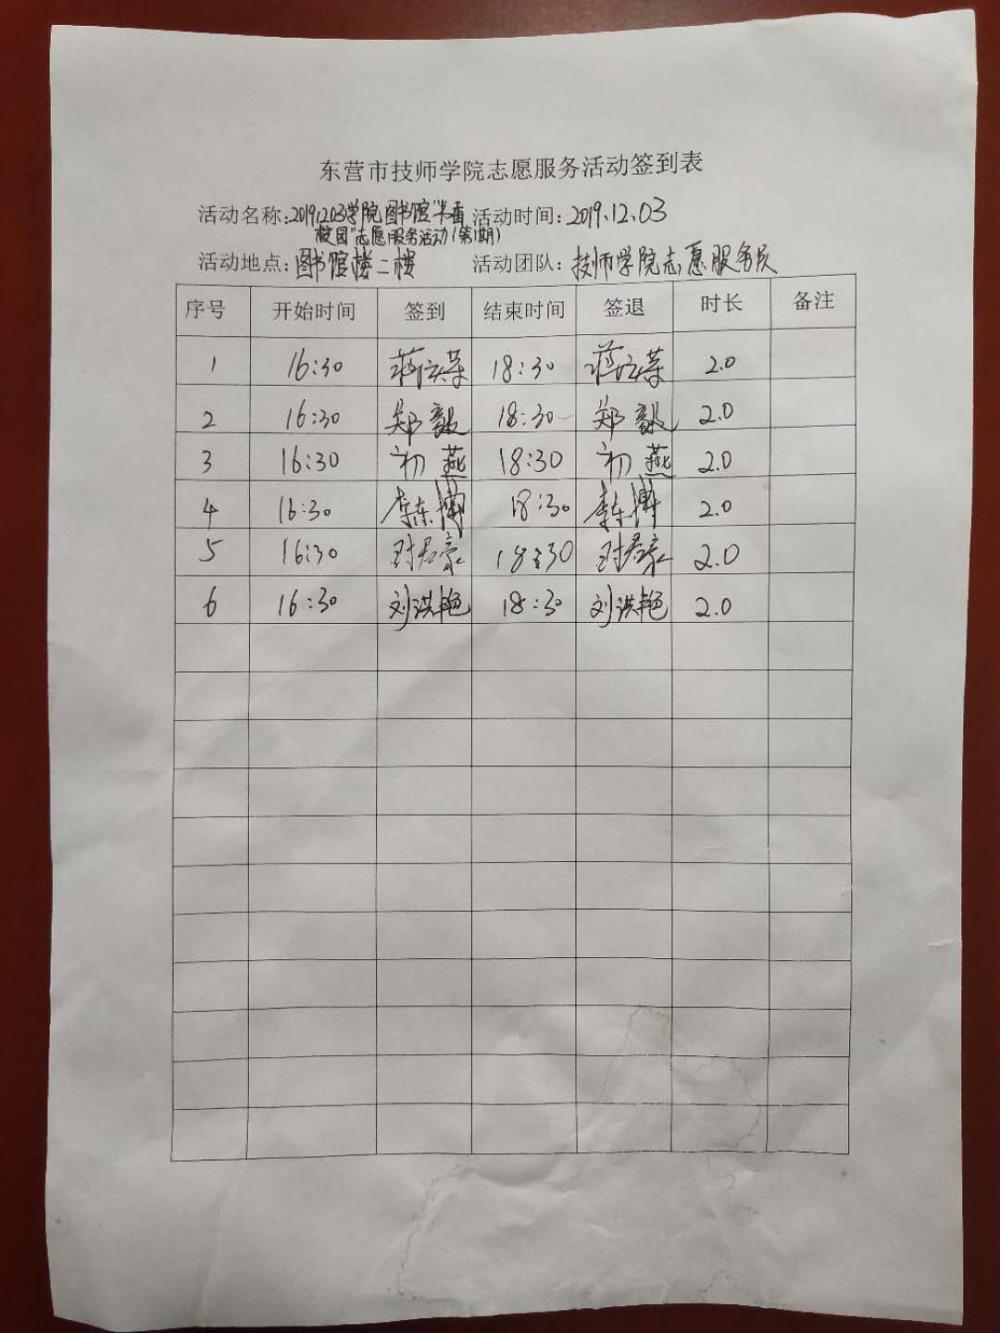 东营市技师学院志愿服务活动签到表
活动名称:20191203学院图书馆"书香 活动时间:2019.12.03
校园"志愿服务活动(第1期)
活动地点:图书馆楼二楼 活动团队:技师学院志愿服务队
序号 开始时间 签到 结束时间 签退 时长 备注
1 16:30 18:30 2.0
2 16:30 郑毅 18:30 郑毅 2.0
3 16:30 初燕 18:30 初燕 2.0
4 16:30 李东博 18:30 李东博 2.0
5 16:30 18:30 2.0
6 16:30 刘洪艳 18:30 刘洪艳 2.0